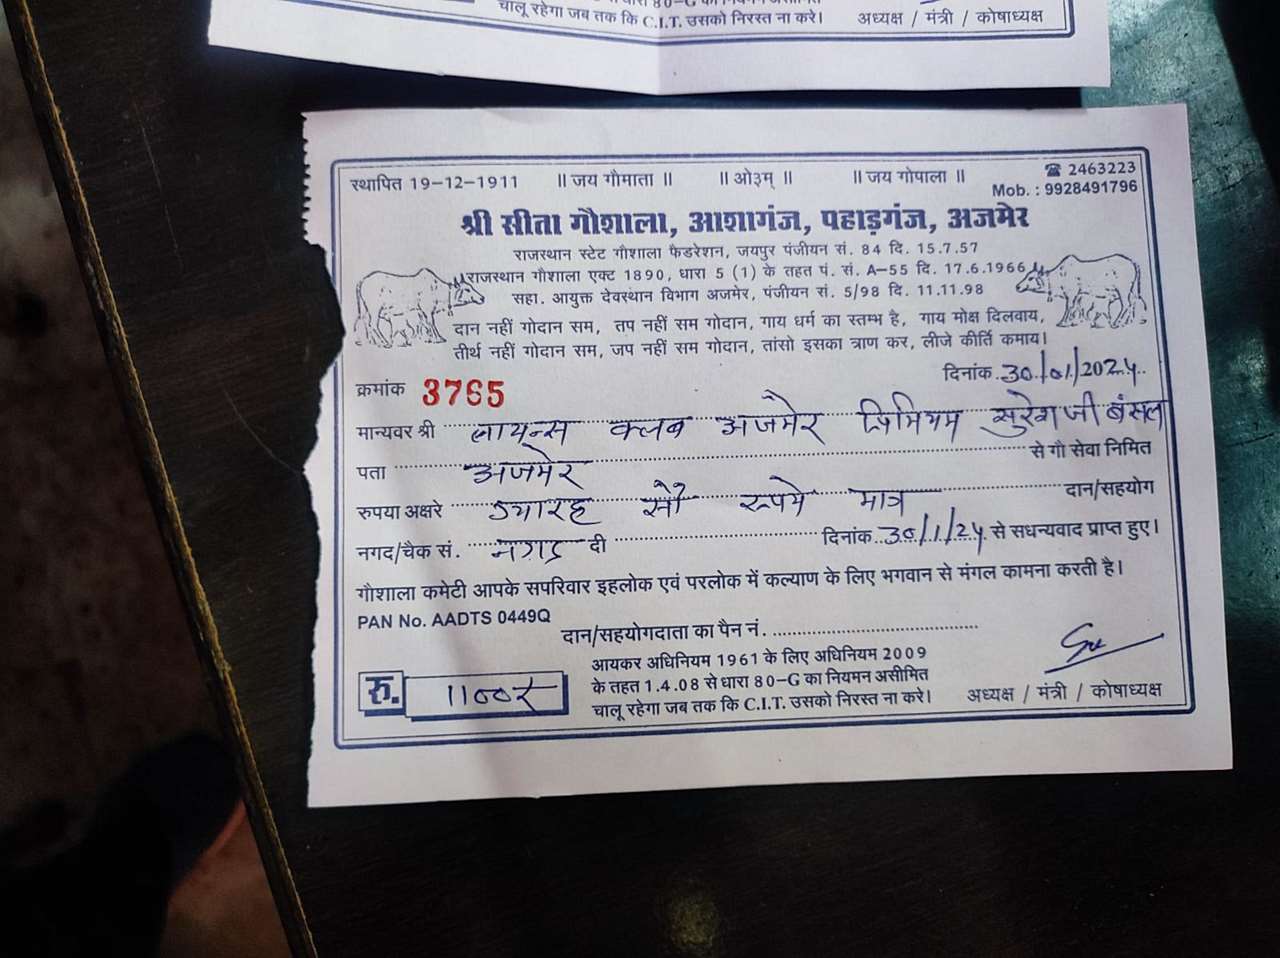 चालू रहेगा जब तक कि C.I.T. उसको निरस्त ना करे।
अध्यक्ष / मंत्री / कोषाध्यक्ष
स्थापित 19-12-1911 ॥ जय गौमाता ॥ ॥ ओ३म् ॥ ॥ जय गोपाला ॥ ☎ 2463223
Mob. : 9928491796
श्री सीता गौशाला, आशागंज, पहाड़गंज, अजमेर
राजस्थान स्टेट गौशाला फैडरेशन, जयपुर पंजीयन सं. 84 दि. 15.7.57
राजस्थान गौशाला एक्ट 1890, धारा 5 (1) के तहत पं. सं. A-55 दि. 17.6.1966
सहा. आयुक्त देवस्थान विभाग अजमेर, पंजीयन सं. 5/98 दि. 11.11.98
दान नहीं गोदान सम, तप नहीं सम गोदान, गाय धर्म का स्तम्भ है, गाय मोक्ष दिलवाय,
तीर्थ नहीं गोदान सम, जप नहीं सम गोदान, तांसो इसका त्राण कर, लीजे कीर्ति कमाय।
क्रमांक 3765 दिनांक 30/01/2024
मान्यवर श्री लायन्स क्लब अजमेर प्रिमियम सुरेश जी बंसल
पता अजमेर से गौ सेवा निमित
रुपया अक्षरे ग्यारह सौ रूपये मात्र दान/सहयोग
नगद/चैक सं. नगद दी दिनांक 30/1/24 से सधन्यवाद प्राप्त हुए।
गौशाला कमेटी आपके सपरिवार इहलोक एवं परलोक में कल्याण के लिए भगवान से मंगल कामना करती है।
PAN No. AADTS 0449Q
दान/सहयोगदाता का पैन नं.
आयकर अधिनियम 1961 के लिए अधिनियम 2009
के तहत 1.4.08 से धारा 80-G का नियमन असीमित
चालू रहेगा जब तक कि C.I.T. उसको निरस्त ना करे।
रु. 1100र
अध्यक्ष / मंत्री / कोषाध्यक्ष